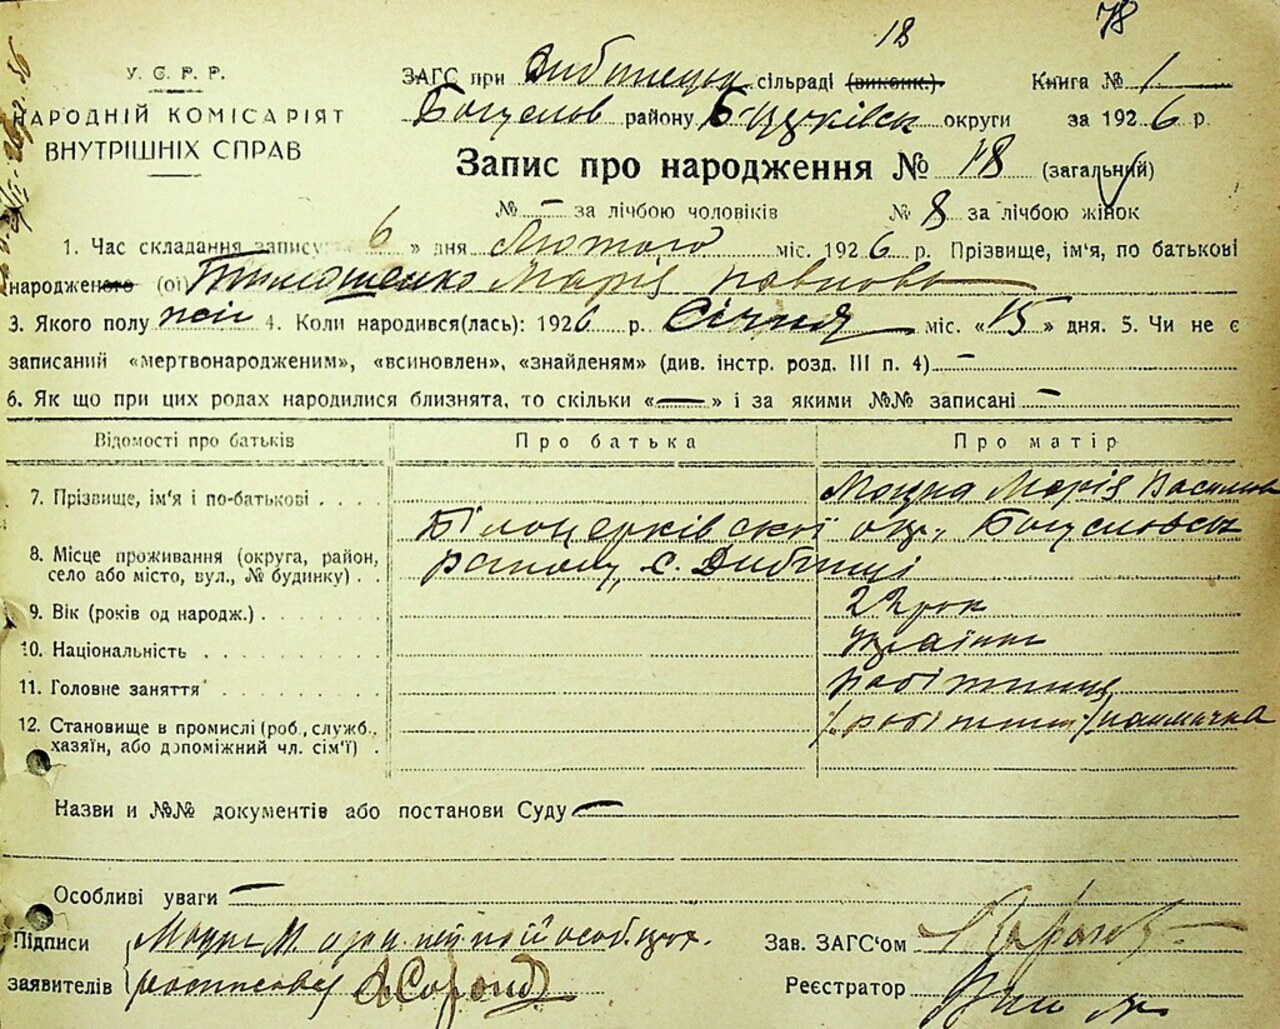 18 78
У. С. Р. Р.
НАРОДНІЙ КОМІСАРІЯТ
ВНУТРІШНІХ СПРАВ
ЗАГС при Дибинецкій сільраді (виконк.) Книга № 1
Богуслов району Б-Церківск округи за 1926 р.
Запис про народження № 18 (загальний)
№ – за лічбою чоловіків № 8 за лічбою жінок
1. Час складання запису: 6 » дня Лютого міс. 1926 р. Прізвище, ім'я, по батькові
народженого (ої) Тимошенко Марія Павлова
3. Якого полу жін 4. Коли народився(лась): 1926 р. Січня міс. «15» дня. 5. Чи не є
записаний «мертвонародженим», «всиновлен», «знайденям» (див. інстр. розд. III п. 4) –
6. Як що при цих родах народилися близнята, то скільки «—» і за якими №№ записані –
Відомості про батьків Про батька Про матір
7. Прізвище, ім'я і по-батькові . . . . Моцна Марія Василов
Білоцерківської окр., Богуславськ
8. Місце проживання (округа, район, району, с. Дибинці
село або місто, вул., № будинку) . .
9. Вік (років од народж.) . . . . . . . 22 рок
10. Національність . . . . . . . . . українк
11. Головне заняття . . . . . . . . робітниця
12. Становище в промислі (роб., служб., /робітниц/ наймичка
хазяїн, або допоміжний чл. сім'ї) .
Назви и №№ документів або постанови Суду —
Особливі уваги —
Підписи Моцна М. особ.
заявителів
Зав. ЗАГС'ом
Реєстратор